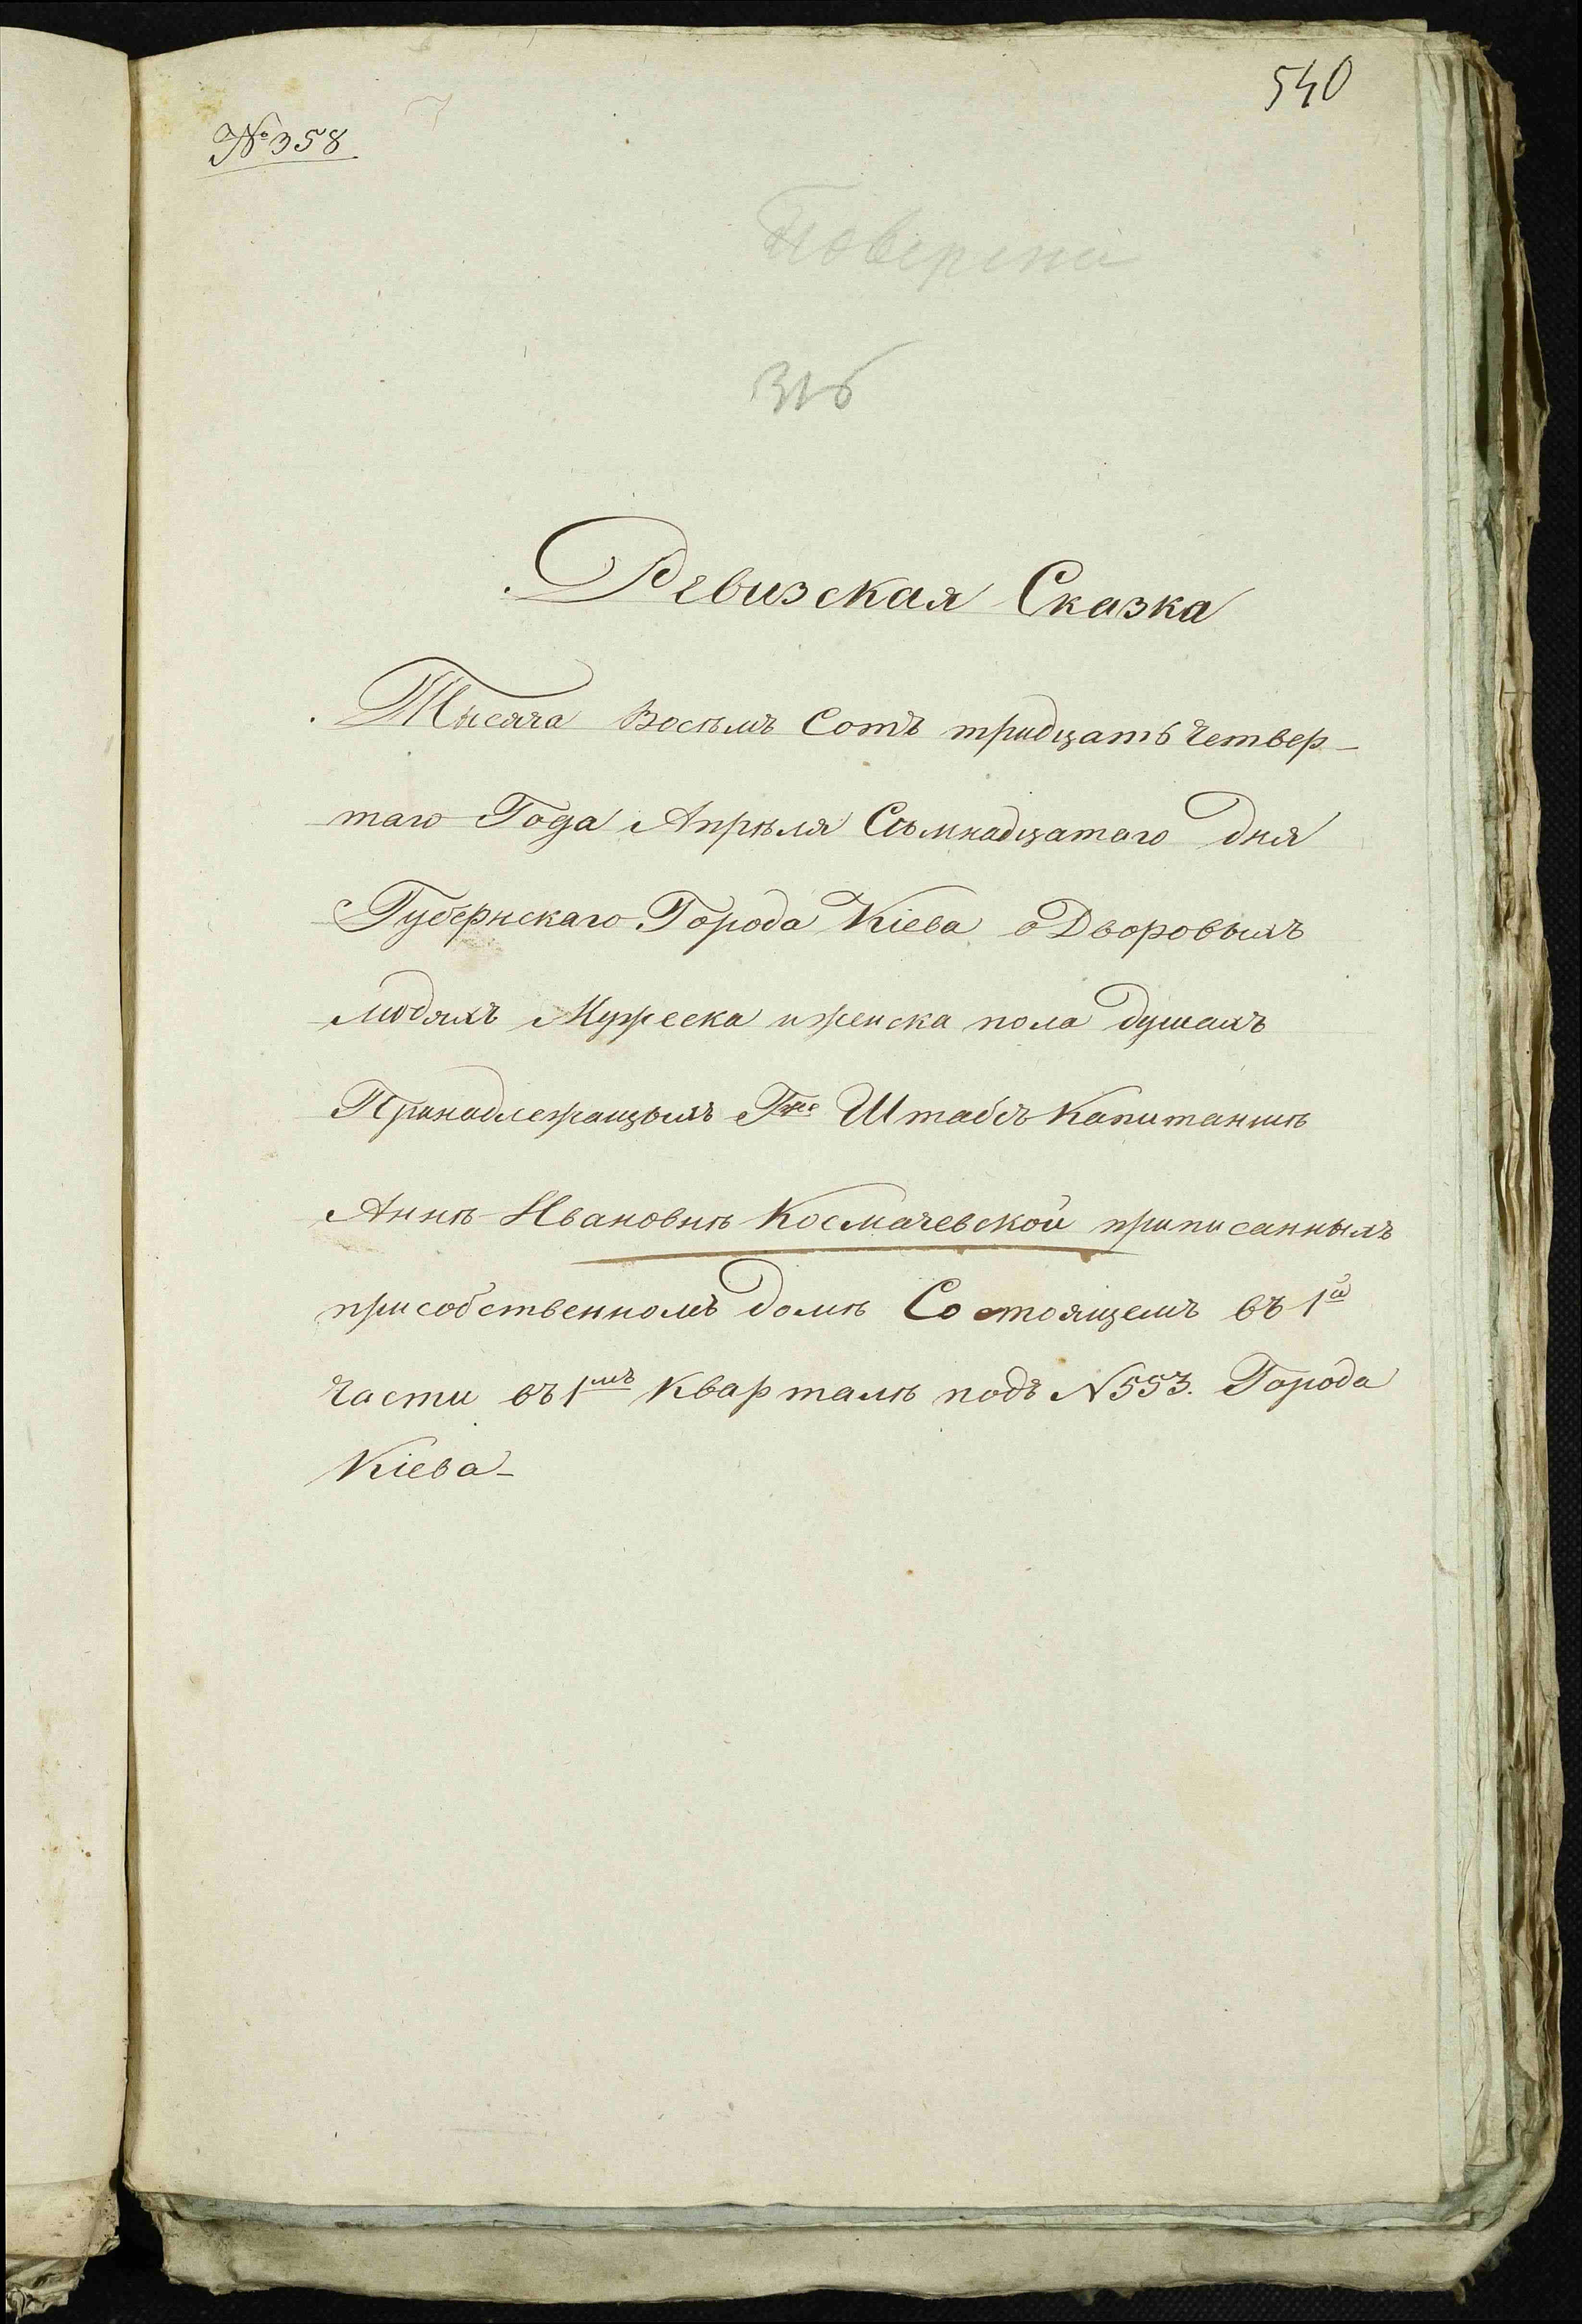 540
№ 358
Повѣрена
Ревизская Сказка
Тысяча Восѣмъ Сотъ тридцать четвер-
таго Года Апрѣля Сѣмнадцатаго дня
Губернскаго Города Кіева о Дворовыхъ
людяхъ Мужеска и женска пола душахъ
Принадлежащыхъ Гже Штабсъ Капитаншѣ
Аннѣ Ивановнѣ Космачевской приписанныхъ
при собственномъ домѣ Состоящемъ въ 1й
части въ 1мъ кварталѣ подъ N 553. Города
Кіева-